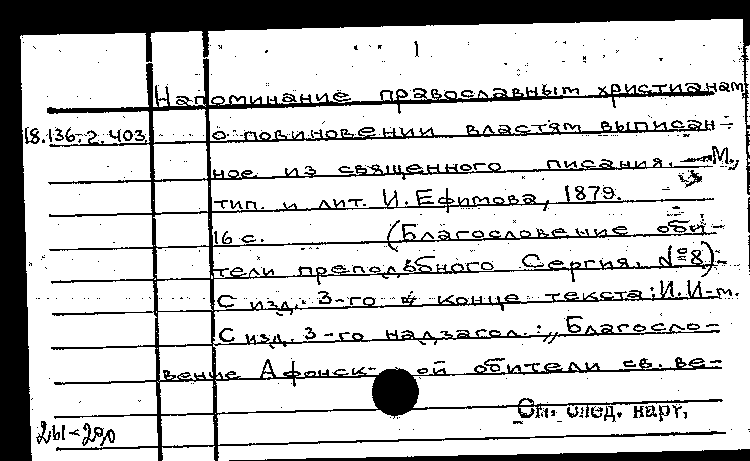 1
Напоминание православным христианам
18.136.2.403 о повиновении властям выписан-
ное из священного писания. — М.,
тип. и лит. И. Ефимова, 1879.
16 с. (Благословение оби-
тели преподобного Сергия. №8)-
С изд. 3-го в конце текста: И.И-т.
С изд. 3-го надзагол.: „Благосло-
вение Афонск-ой обители св. ве-
См. след. карт.